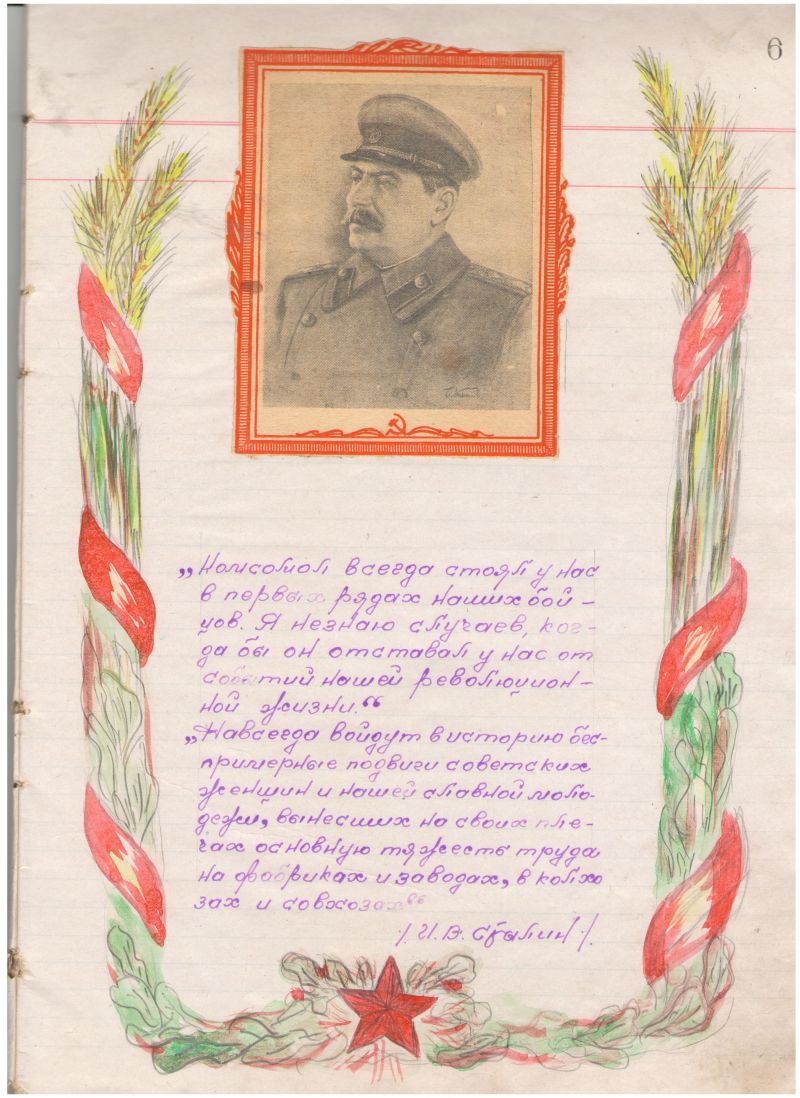 6
„Комсомол всегда стоял у нас
в первых рядах наших бой-
цов. Я незнаю случаев, ког-
да бы он отставал у нас от
событий нашей революцион-
ной жизни.“
„Навсегда войдут в историю бес-
примерные подвиги советских
женщин и нашей славной моло-
дежи, вынесших на своих пле-
чах основную тяжесть труда
на фабриках и заводах, в колхо
зах и совхозах“
/И. В. Сталин/.